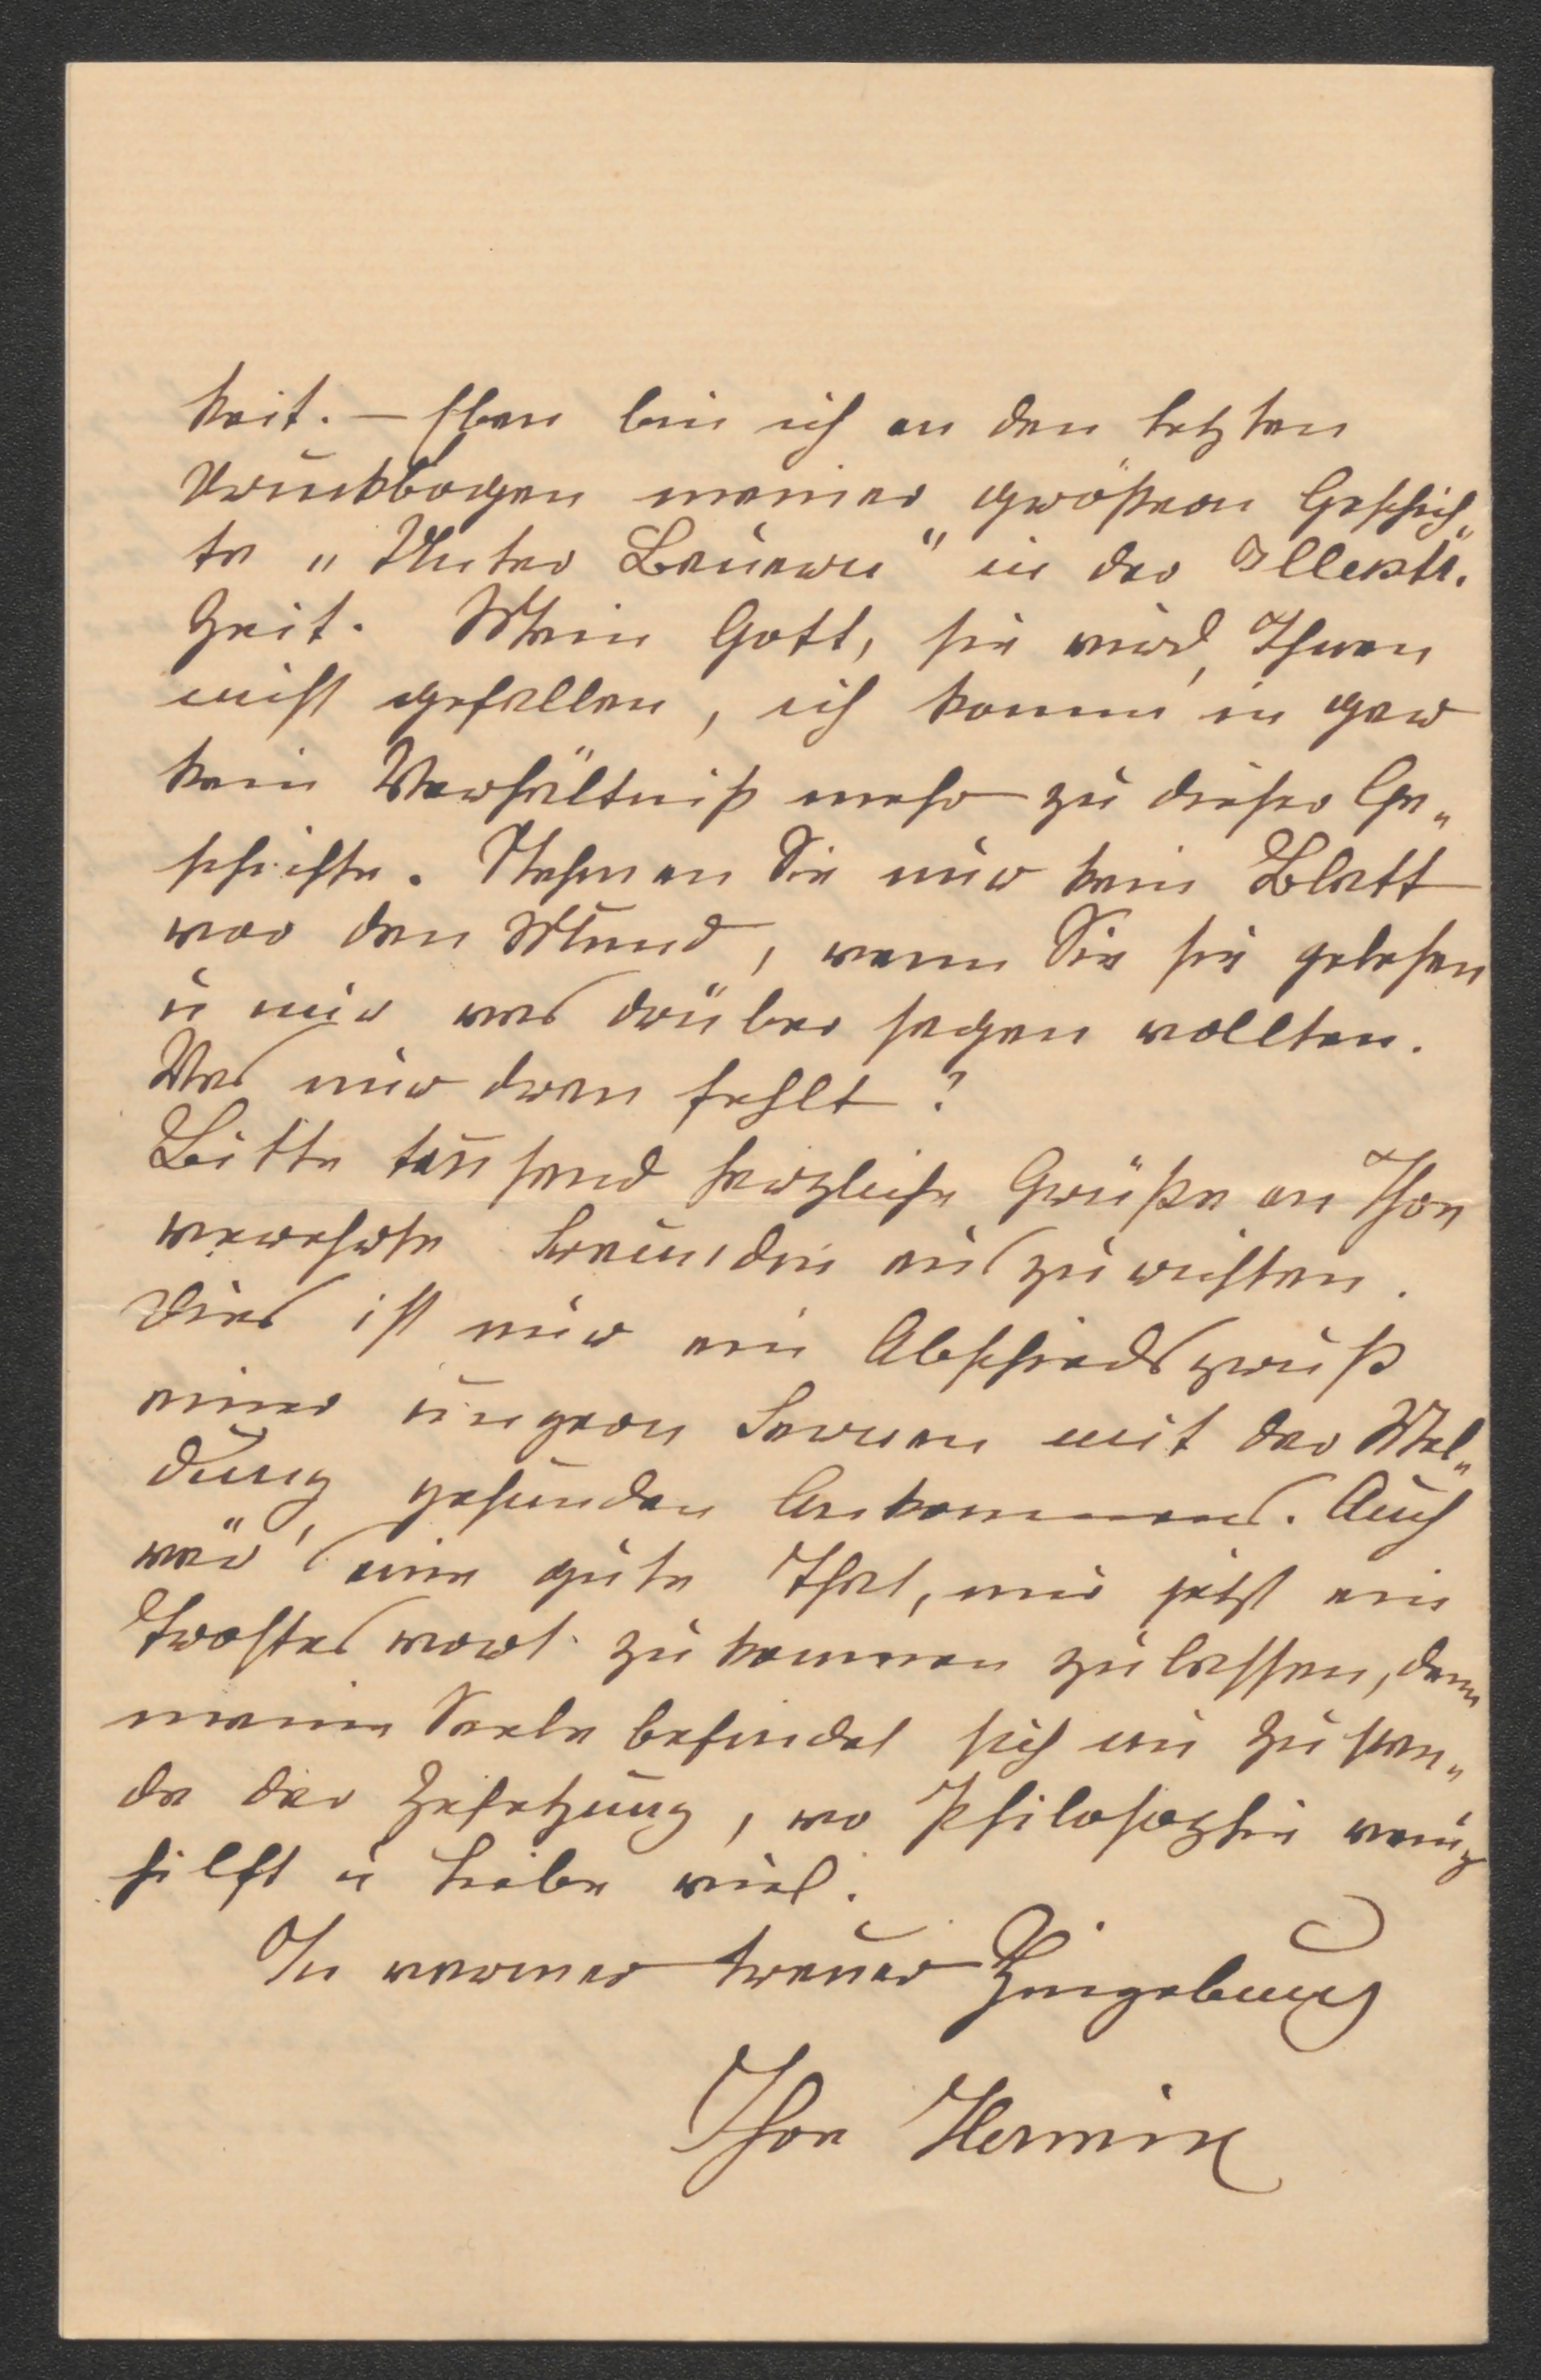 keit. – Eben bin ich an den letzten
Druckbogen meiner größern Geschich„
te „Unter Bauern“ in der Illustr.
Zeit. Mein Gott, sie wird Ihnen
nicht gefallen, ich komm' in gar
kein Verhältniß mehr zu dieser Ge„
schichte. Nehmen Sie nur kein Blatt
vor den Mund, wenn Sie sie gelesen
u mir was drüber sagen wollten.
Was mir dran fehlt?
Bitte tausend herzliche Grüße an Ihre
verehrte Freundin auszurichten.
Dies ist nur ein Abschiedsgruß
einer ungern Fernen mit der Mel„
dung gesunden Ankommens. Auch
wär's eine gute That, mir jetzt ein
Trosteswort zukommen zu lassen, denn
meine Seele befindet sich im Zustan„
de der Zersetzung, wo Philosophie wenig
hilft u Liebe viel.
In warmer treuer Hingebung
Ihre Hermine